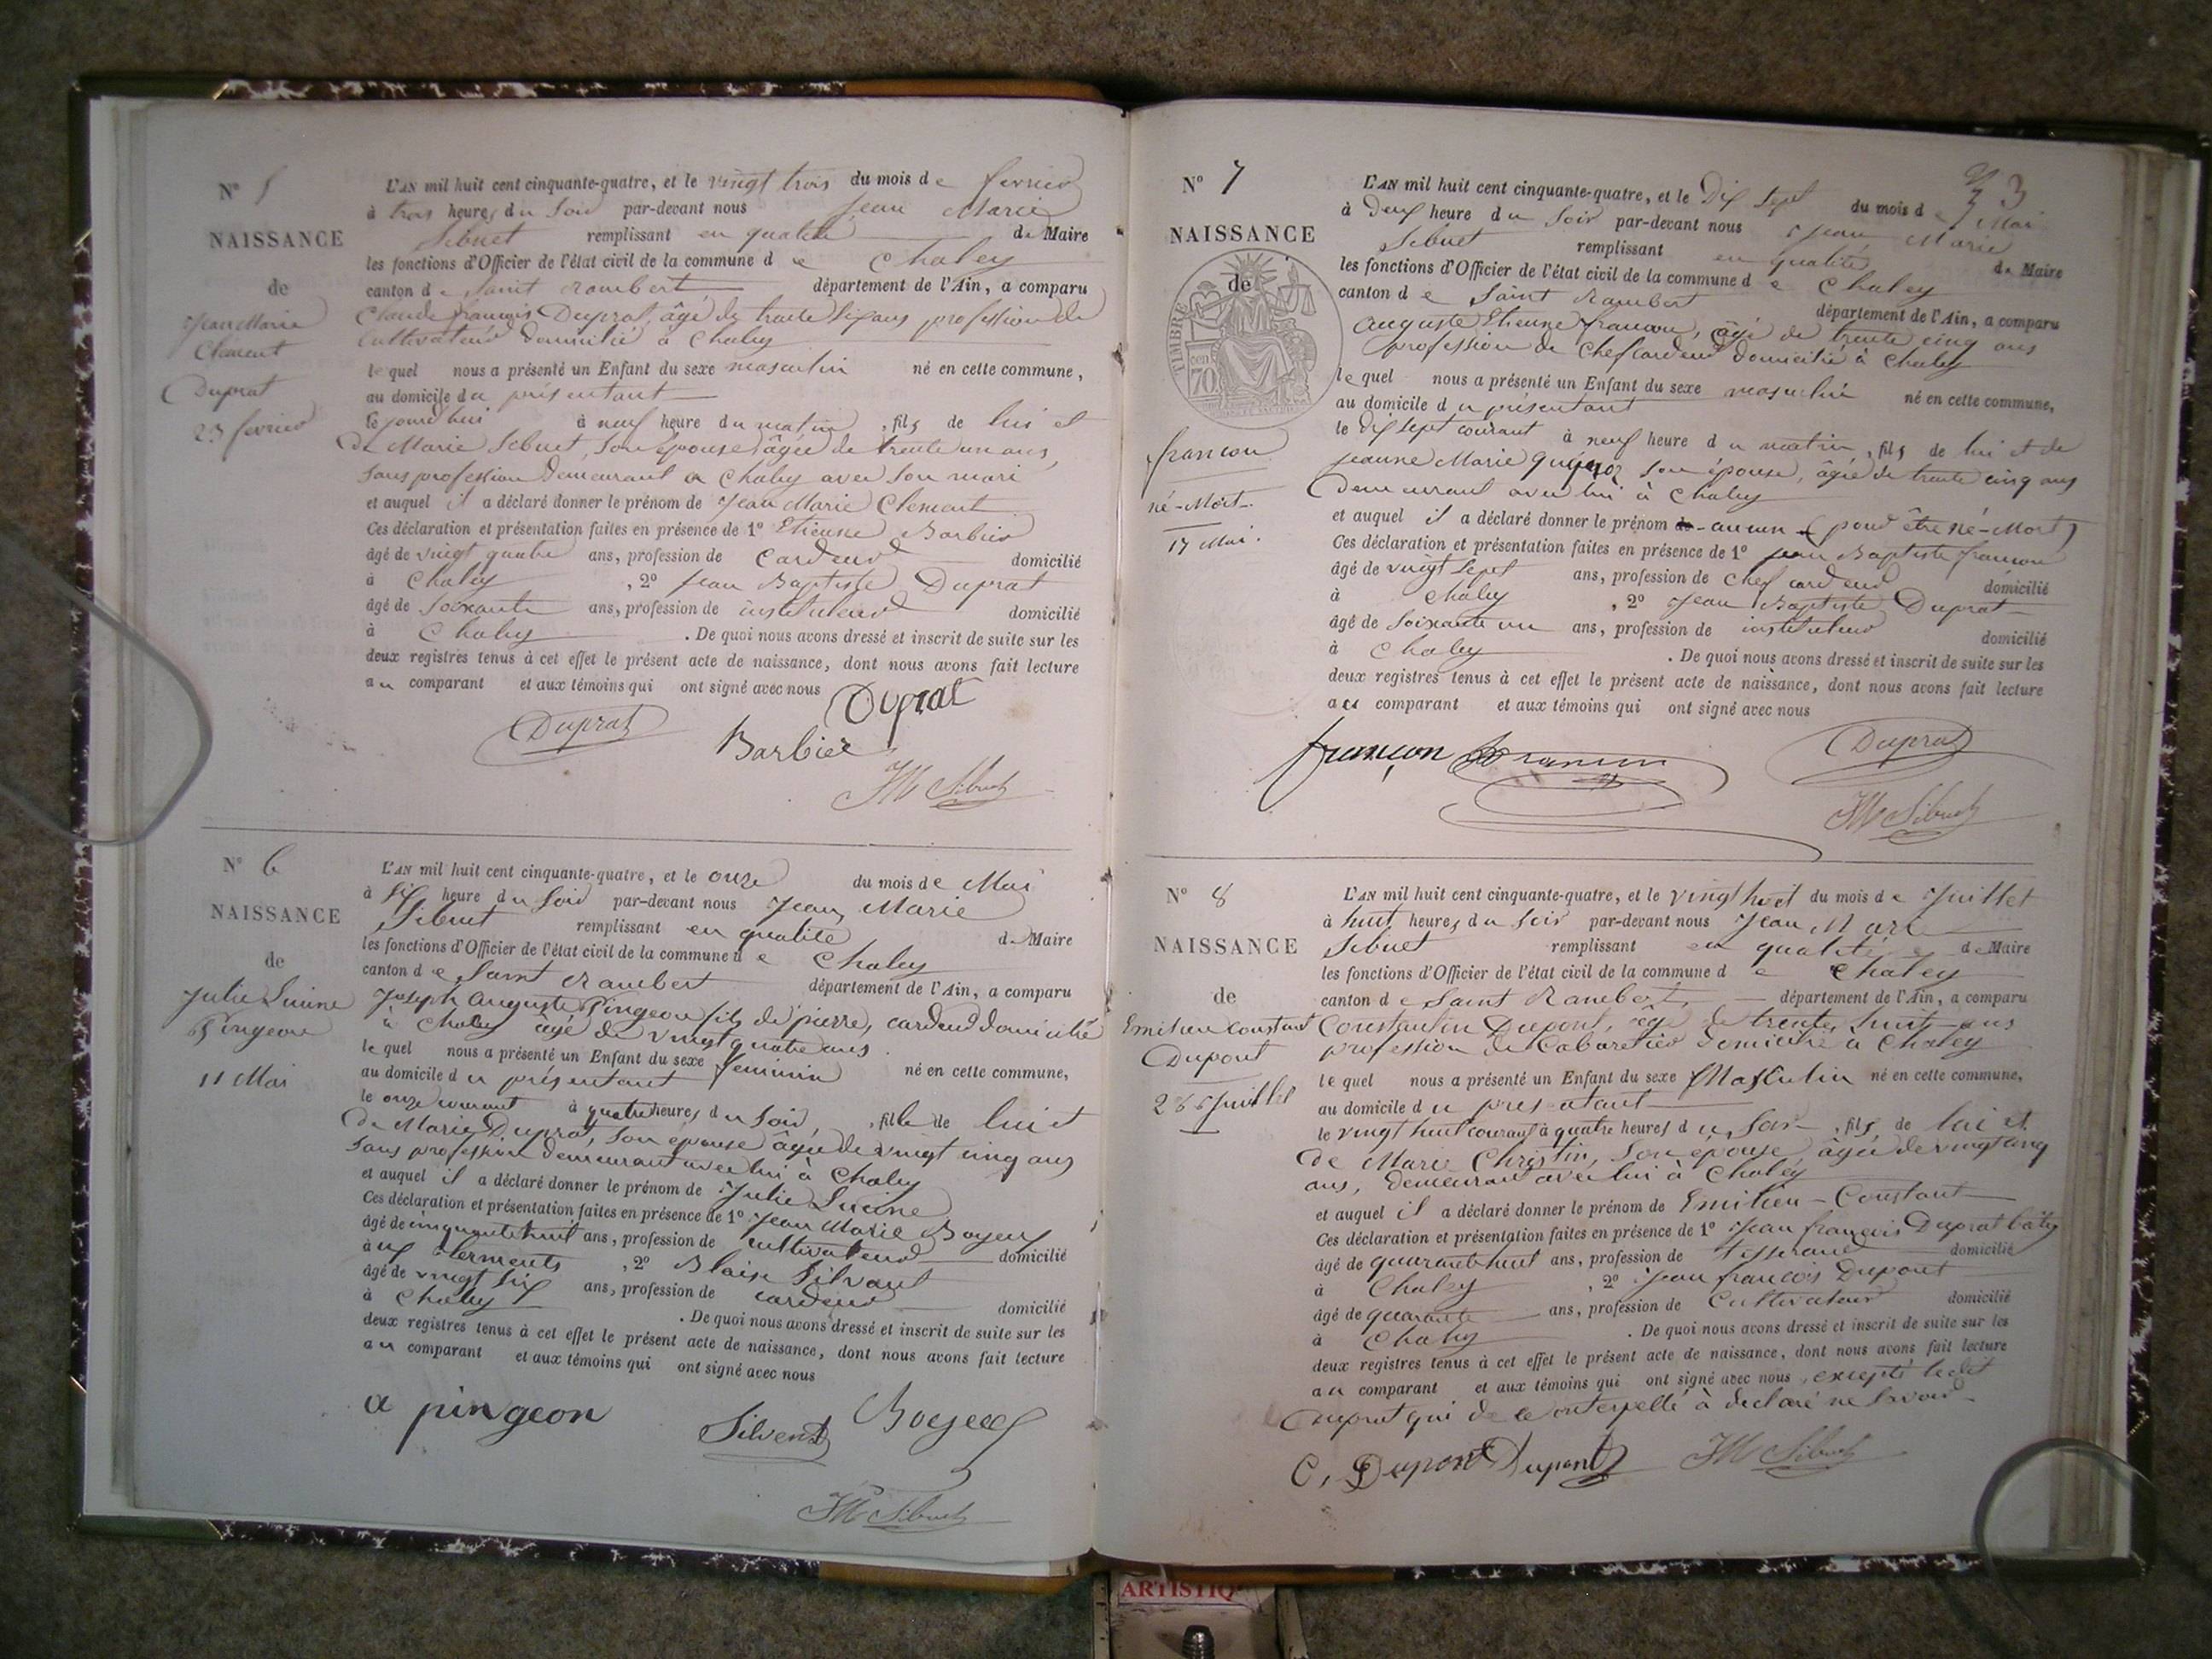 N° 5
NAISSANCE
de
Jean Marie
Clément
Duprat
23 fevrier
L'AN mil huit cent cinquante-quatre, et le vingt trois du mois de fevrier
à trois heures du soir par-devant nous Jean Marie
Sibuet remplissant en qualité de Maire
les fonctions d'Officier de l'état civil de la commune de Chaley
canton de Saint Rambert département de l'Ain, a comparu
Claude françois Duprat, âgé de trente six ans profession de
Cultivateur domicilié à Chaley
lequel nous a présenté un Enfant du sexe masculin né en cette commune,
au domicile du présentant
cejourd'hui à neuf heure du matin, fils de lui et
de Marie Sibuet, son épouse âgée de trente un ans,
sans profession demeurant à Chaley avec son mari
et auquel il a déclaré donner le prénom de Jean Marie Clement
Ces déclaration et présentation faites en présence de 1° Etienne Barbier
âgé de vingt quatre ans, profession de Cardeur domicilié
à Chaley, 2° Jean Baptiste Duprat
âgé de soixante ans, profession de instituteur domicilié
à Chaley. De quoi nous avons dressé et inscrit de suite sur les
deux registres tenus à cet effet le présent acte de naissance, dont nous avons fait lecture
au comparant et aux témoins qui ont signé avec nous
Duprat
Duprat
Barbier
JM Sibuet
N° 6
NAISSANCE
de
Julie Lucine
Pingeon
11 Mai
L'AN mil huit cent cinquante-quatre, et le onze du mois de Mai
à six heure du soir par-devant nous Jean Marie
Sibuet remplissant en qualité de Maire
les fonctions d'Officier de l'état civil de la commune de Chaley
canton de Saint Rambert département de l'Ain, a comparu
Joseph Auguste Pingeon fils de pierre, cardeur domicilié
à Chaley âgé de vingt quatre ans
lequel nous a présenté un Enfant du sexe feminin né en cette commune,
au domicile du présentant
le onze courant à quatre heures du soir, fille de lui et
de Marie Duprat, son épouse âgée de vingt cinq ans
sans profession demeurant avec lui à Chaley
et auquel il a déclaré donner le prénom de Julie Lucine
Ces déclaration et présentation faites en présence de 1° Jean Marie Boyeux
âgé de cinquante huit ans, profession de cultivateur domicilié
à, 2° Blaise Silvant
âgé de vingt six ans, profession de cardeur domicilié
à Chaley. De quoi nous avons dressé et inscrit de suite sur les
deux registres tenus à cet effet le présent acte de naissance, dont nous avons fait lecture
au comparant et aux témoins qui ont signé avec nous
a pingeon
Silvent
Boyeux
JM Sibuet
3
N° 7
NAISSANCE
de
TIMBRE
70
francon
né-Mort
17 Mai.
L'AN mil huit cent cinquante-quatre, et le Dix sept du mois de Mai
à Deux heure du soir par-devant nous Jean Marie
Sibuet remplissant en qualité de Maire
les fonctions d'Officier de l'état civil de la commune de Chaley
canton de Saint Rambert département de l'Ain, a comparu
Auguste Etienne francon, âgé de trente cinq ans
profession de Chef cardeur domicilié à Chaley
lequel nous a présenté un Enfant du sexe masculin né en cette commune,
au domicile du présentant
le dix sept courant à neuf heure du matin, fils de lui et de
Jeanne Marie son épouse, âgée de trente cinq ans
Demeurant avec lui à Chaley
et auquel il a déclaré donner le prénom - aucun - (pour être né-Mort)
Ces déclaration et présentation faites en présence de 1° Jean Baptiste francon
âgé de vingt sept ans, profession de chef cardeur domicilié
à Chaley, 2° Jean Baptiste Duprat
âgé de soixante un ans, profession de instituteur domicilié
à Chaley. De quoi nous avons dressé et inscrit de suite sur les
deux registres tenus à cet effet le présent acte de naissance, dont nous avons fait lecture
au comparant et aux témoins qui ont signé avec nous
françon
Duprat
JM Sibuet
N° 8
NAISSANCE
de
Emilien Constant
Dupont
Juillet
L'AN mil huit cent cinquante-quatre, et le vingt huit du mois de Juillet
à huit heures du soir par-devant nous Jean Marie
Sibuet remplissant en qualité de Maire
les fonctions d'Officier de l'état civil de la commune de Chaley
canton de Saint Rambert département de l'Ain, a comparu
Constantin Dupont, âgé de trente huit ans
profession de Cabaretier domicilié à Chaley
lequel nous a présenté un Enfant du sexe Masculin né en cette commune,
au domicile du présentant
le vingt huit courant à quatre heures du soir, fils de lui et
de Marie Christin, son épouse, âgée de vingt cinq
ans, demeurant avec lui à Chaley
et auquel il a déclaré donner le prénom de Emilien - Constant
Ces déclaration et présentation faites en présence de 1° Jean françois Duprat
âgé de quarante huit ans, profession de Tisserand domicilié
à Chaley, 2° Jean francois Dupont
âgé de quarante ans, profession de Cultivateur domicilié
à Chaley. De quoi nous avons dressé et inscrit de suite sur les
deux registres tenus à cet effet le présent acte de naissance, dont nous avons fait lecture
au comparant et aux témoins qui ont signé avec nous, excepté ledit
Duprat qui de ce interpellé à déclaré ne savoir
C. Dupont Dupont JM Sibuet
ARTISTIQ